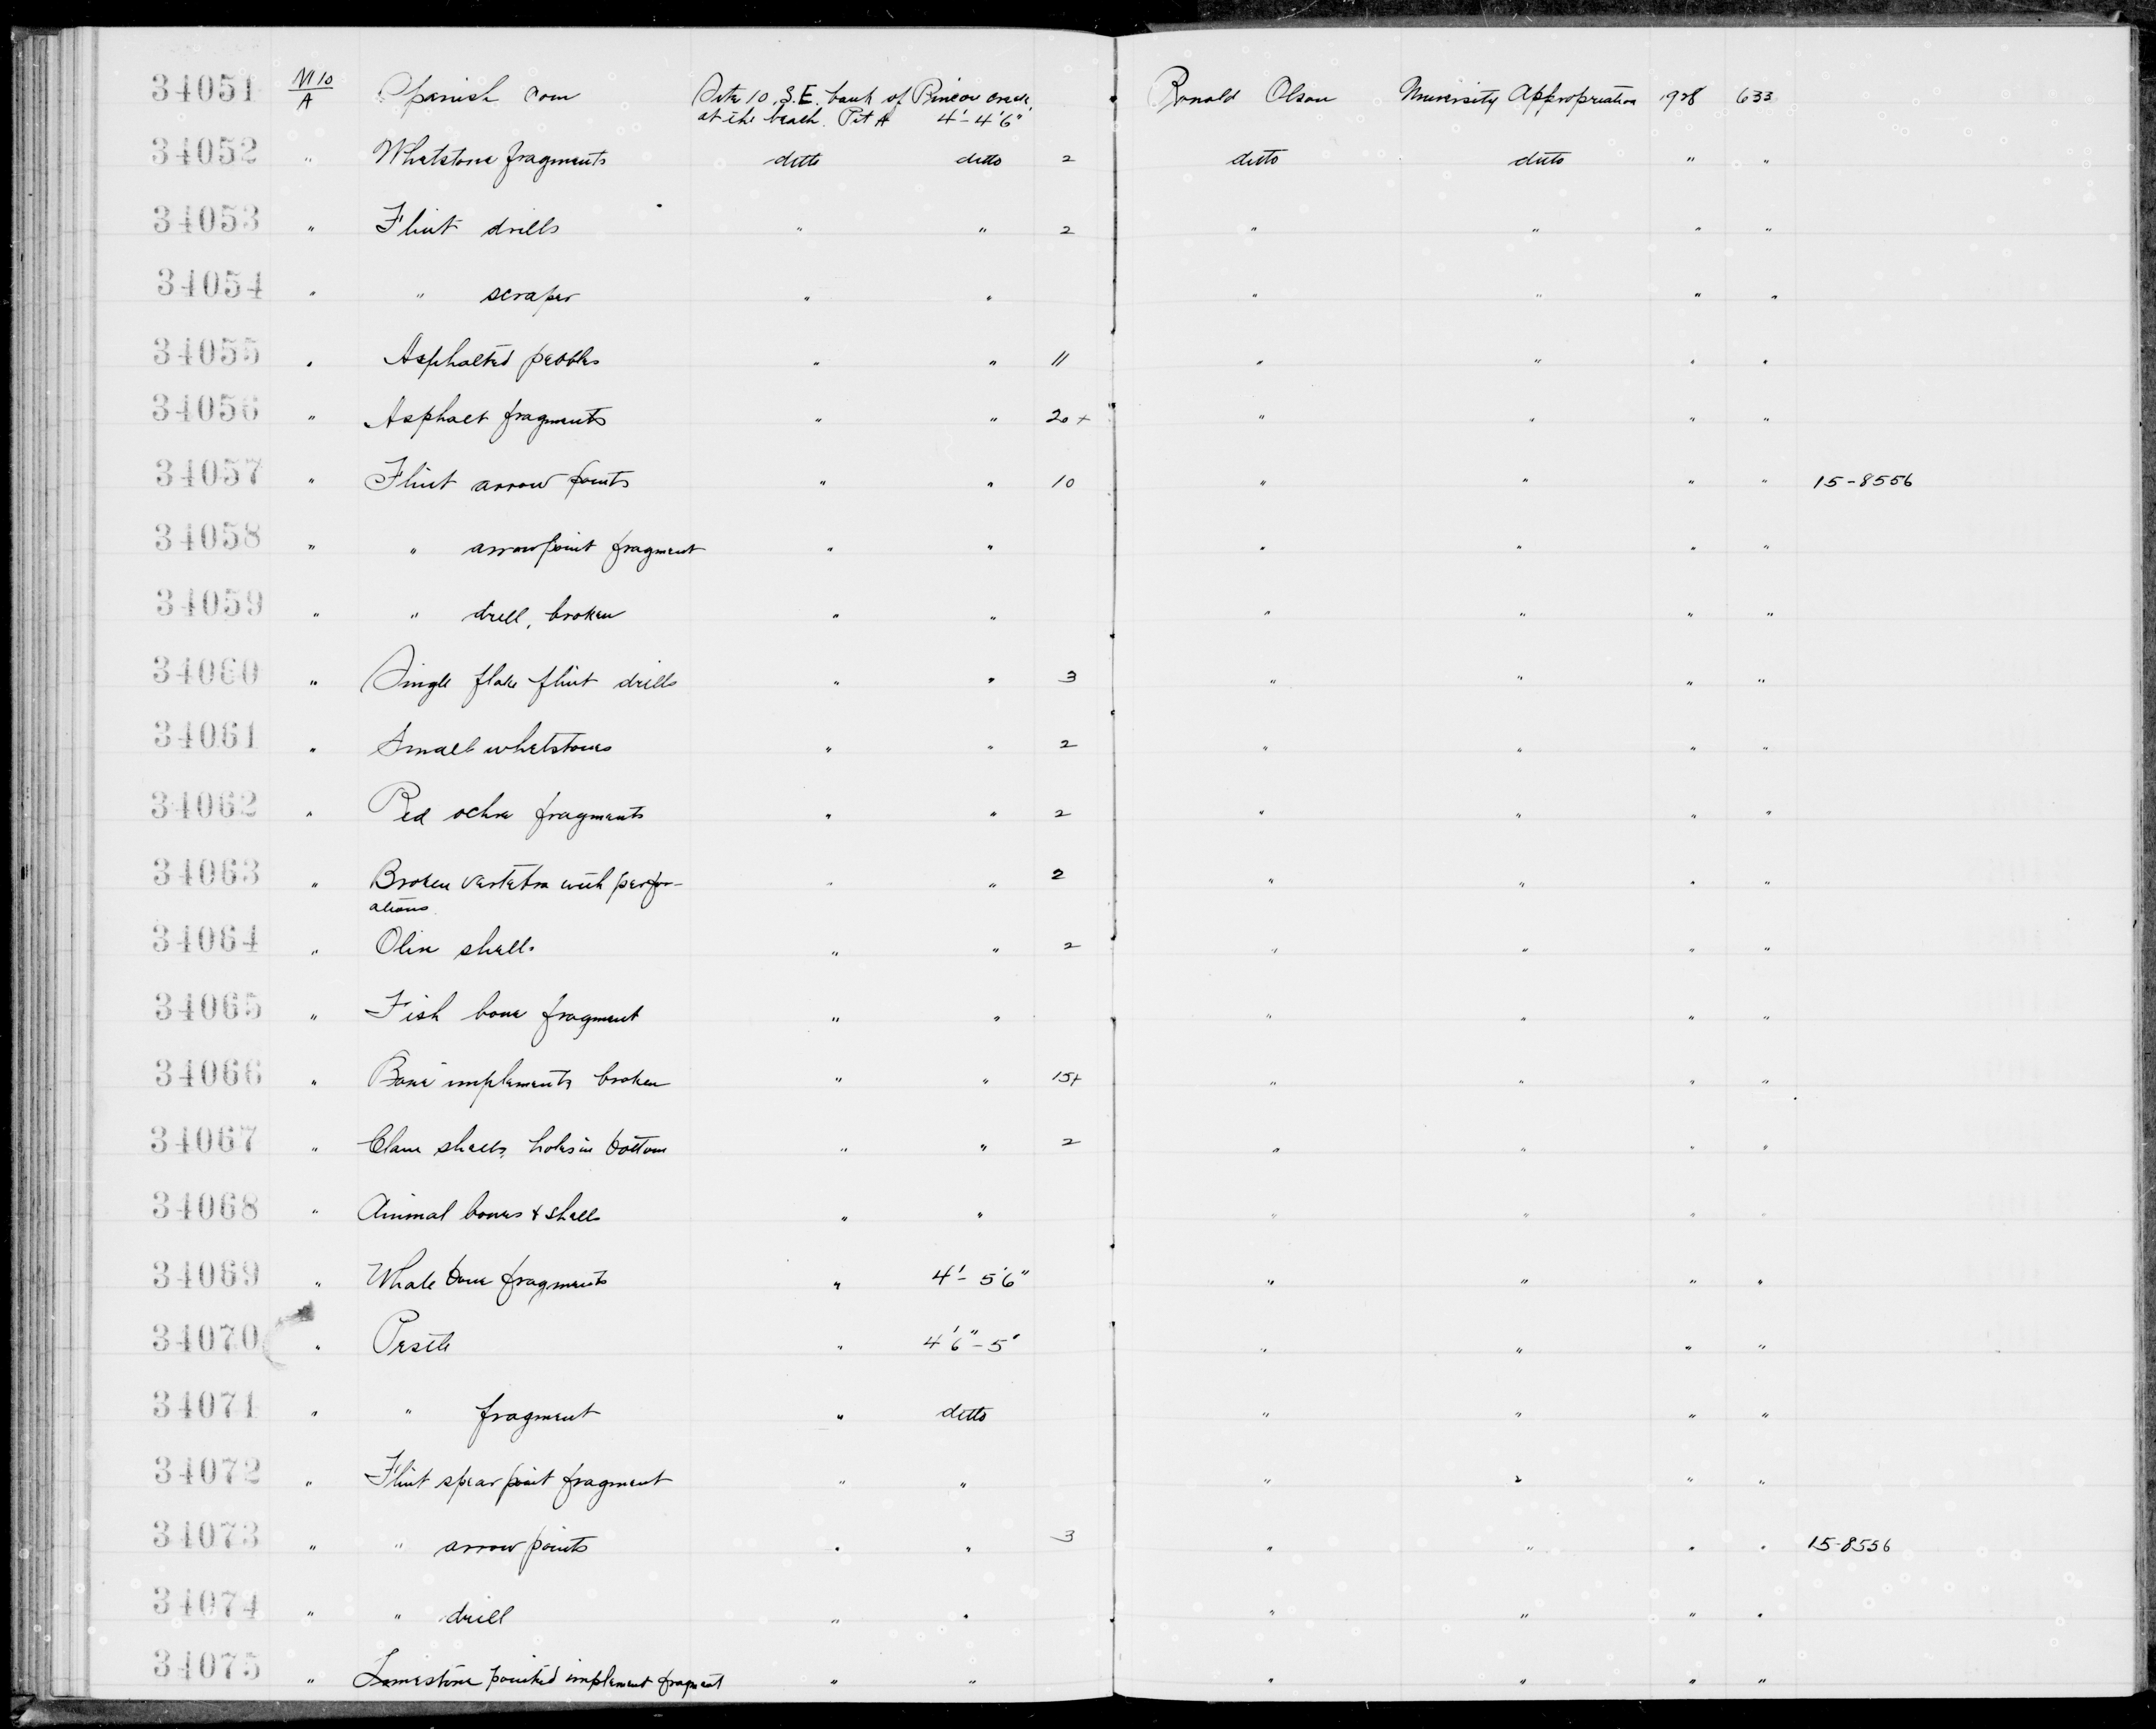 34051 VI 10/A Spanish coin Site 10, S.E. bank of Rincon creek, Ronald Olson University Appropriation 1928 633
at the beach. Pit A 4'-4'6"
34052 " Whetstone fragments ditto ditto 2 ditto ditto " "
34053 " Flint drills " " 2 " " " "
34054 " " scraper " " " " " "
34055 " Asphalted pebbles " " 11 " " " "
34056 " Asphalt fragments " " 20+ " " " "
34057 " Flint arrow points " " 10 " " " " 15-8556
34058 " " arrowpoint fragment " " " " " "
34059 " " drill, broken " " " " " "
34060 " Single flake flint drills " " 3 " " " "
34061 " Small whetstones " " 2 " " " "
34062 " Red ochre fragments " " 2 " " " "
34063 " Broken vertebra with perfor- " " 2 " " " "
ations
34064 " Oliva shells " " 2 " " " "
34065 " Fish bone fragment " " " " " "
34066 " Bone implements broken " " 15+ " " " "
34067 " Clam shells, holes in bottom " " 2 " " " "
34068 " Animal bones & shells " " " " " "
34069 " Whale bone fragments " 4'-5'6" " " " "
34070 " Pestle " 4'6"-5' " " " "
34071 " " fragment " ditto " " " "
34072 " Flint spear point fragment " " " " " "
34073 " " arrow points " " 3 " " " " 15-8556
34074 " " drill " " " " " "
34075 " Limestone pointed implement fragment " " " " " "